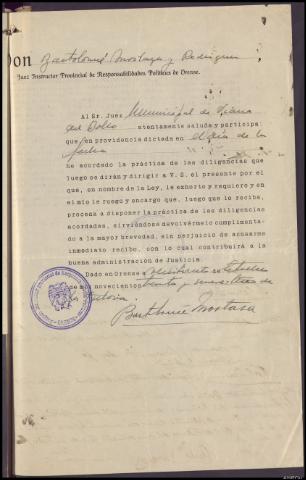 Don Bartolomé Mostaza y Rodríguez
Juez Instructor Provincial de Responsabilidades Políticas de Orense.
Al Sr. Juez Municipal de Viana
del Bollo atentamente saluda y participa:
que en providencia dictada en el día de la
fecha
he acordado la práctica de las diligencias que
luego se dirán y dirigir a V. S. el presente por el
que, en nombre de la Ley, le exhorto y requiero y en
el mío le ruego y encargo que, luego lo reciba,
proceda a disponer la práctica de las diligencias
acordadas, sirviéndose devolvérmelo cumplimenta-
do a la mayor brevedad, sin perjuicio de acusarme
inmediato recibo, con lo cual contribuirá a la
buena administración de Justicia.
Dado en Orense a veintiocho de Octubre
de mil novecientos treinta y nueve. Año de
la Victoria.
Bartolomé Mostaza